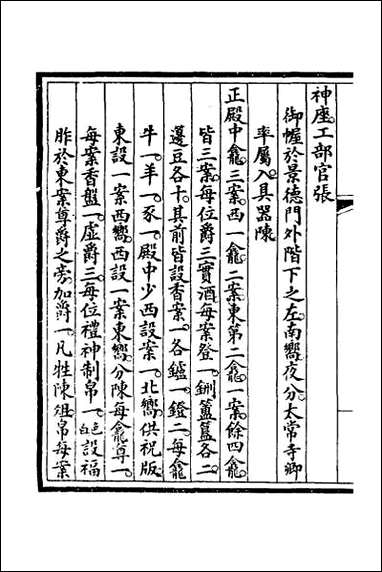 神座工部官張
御幄於景德門外階下之左南嚮夜分太常寺卿
率屬入具器陳
正殿中龕三案西一龕二案東第二龕一案餘四龕
皆三案每位爵三實酒每案登一鉶簠簋各二
籩豆各十其前皆設香案一各鑪一鐙二每龕
牛一羊一豕一殿中少西設案一北嚮供祝版
東設一案西嚮西設一案東嚮分陳每龕尊一
每案香盤一虛爵三每位禮神制帛一色白設福
胙於東案尊爵之旁加爵一凡牲陳俎帛每案